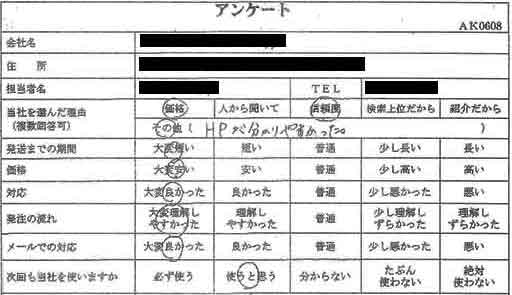 アンケート
AK0608
会社名
住 所
担当者名 TEL
当社を選んだ理由 価格 人から聞いて 信頼度 検索上位だから 紹介だから
(複数回答可) その他( HPが分かりやすかった )
発送までの期間 大変短い 短い 普通 少し長い 長い
価格 大変安い 安い 普通 少し高い 高い
対応 大変良かった 良かった 普通 少し悪かった 悪い
発注の流れ 大変理解しやすかった 理解しやすかった 普通 少し理解しずらかった 理解しずらかった
メールでの対応 大変良かった 良かった 普通 少し悪かった 悪い
次回も当社を使いますか 必ず使う 使うと思う 分からない たぶん使わない 絶対使わない